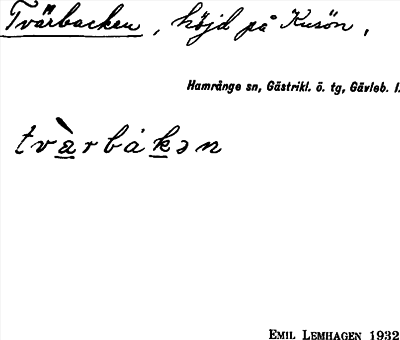 Tvärbacken, höjd på Kusön,
Hamrånge sn, Gästrikl. ö. tg, Gävleb. l.
tvàrbákən
EMIL LEMHAGEN 1932